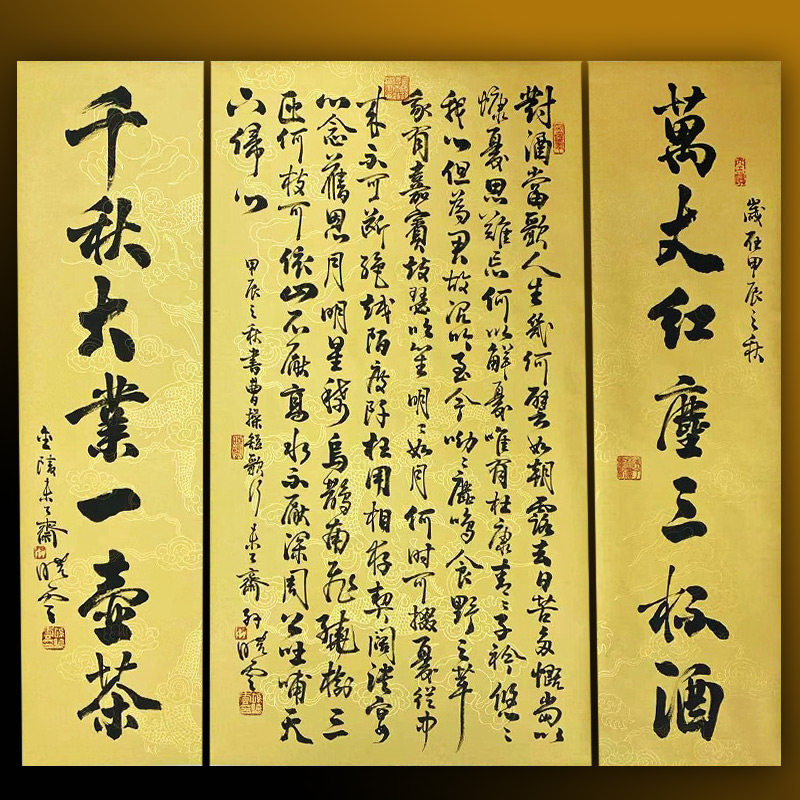 萬丈紅塵三杯酒
歲在甲辰之秋
對酒當歌人生幾何譬如朝露去日苦多慨當以
慷憂思難忘何以解憂唯有杜康青〻子衿悠〻
我心但為君故沉吟至今呦〻鹿鳴食野之苹
我有嘉賓鼓瑟吹笙明〻如月何時可掇憂從中
來不可斷絕越陌度阡枉用相存契闊談宴
心念舊恩月明星稀烏鵲南飛繞樹三
匝何枝可依山不厭高水不厭深周公吐哺天
下歸心
甲辰之秋書曹操短歌行 齋 孫曉雲
千秋大業一壺茶
金陵 齋 曉雲